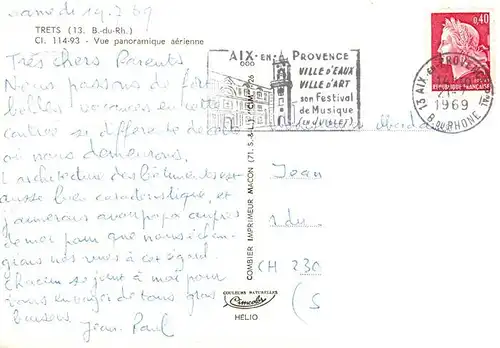 samedi 19.7.69
TRETS (13. B.-du-Rh.)
Cl. 114-93 - Vue panoramique aérienne
Très chers Parents.
Nous passons de fort
belles vacances en cette
contrée si différente de celle
où nous demeurons.
L'architecture des bâtiments est
aussi bien caractéristique, et
j'aimerais avoir papa auprès
de moi pour que nous échan-
gions nos vues à cet égard.
Chacun se joint à moi pour
vous envoyer de tous gros
baisers
Jean-Paul
AIX-EN-PROVENCE
VILLE d'EAUX
VILLE d'ART
son Festival
de Musique
(EN JUILLET)
0,40
RÉPUBLIQUE FRANÇAISE
13 AIX-EN-PROVENCE
1969
B. DU RHONE
COMBIER IMPRIMEUR MACON (71. S.-&-L.)
Jean
CH 230
COULEURS NATURELLES
Cimcolor
HÉLIO